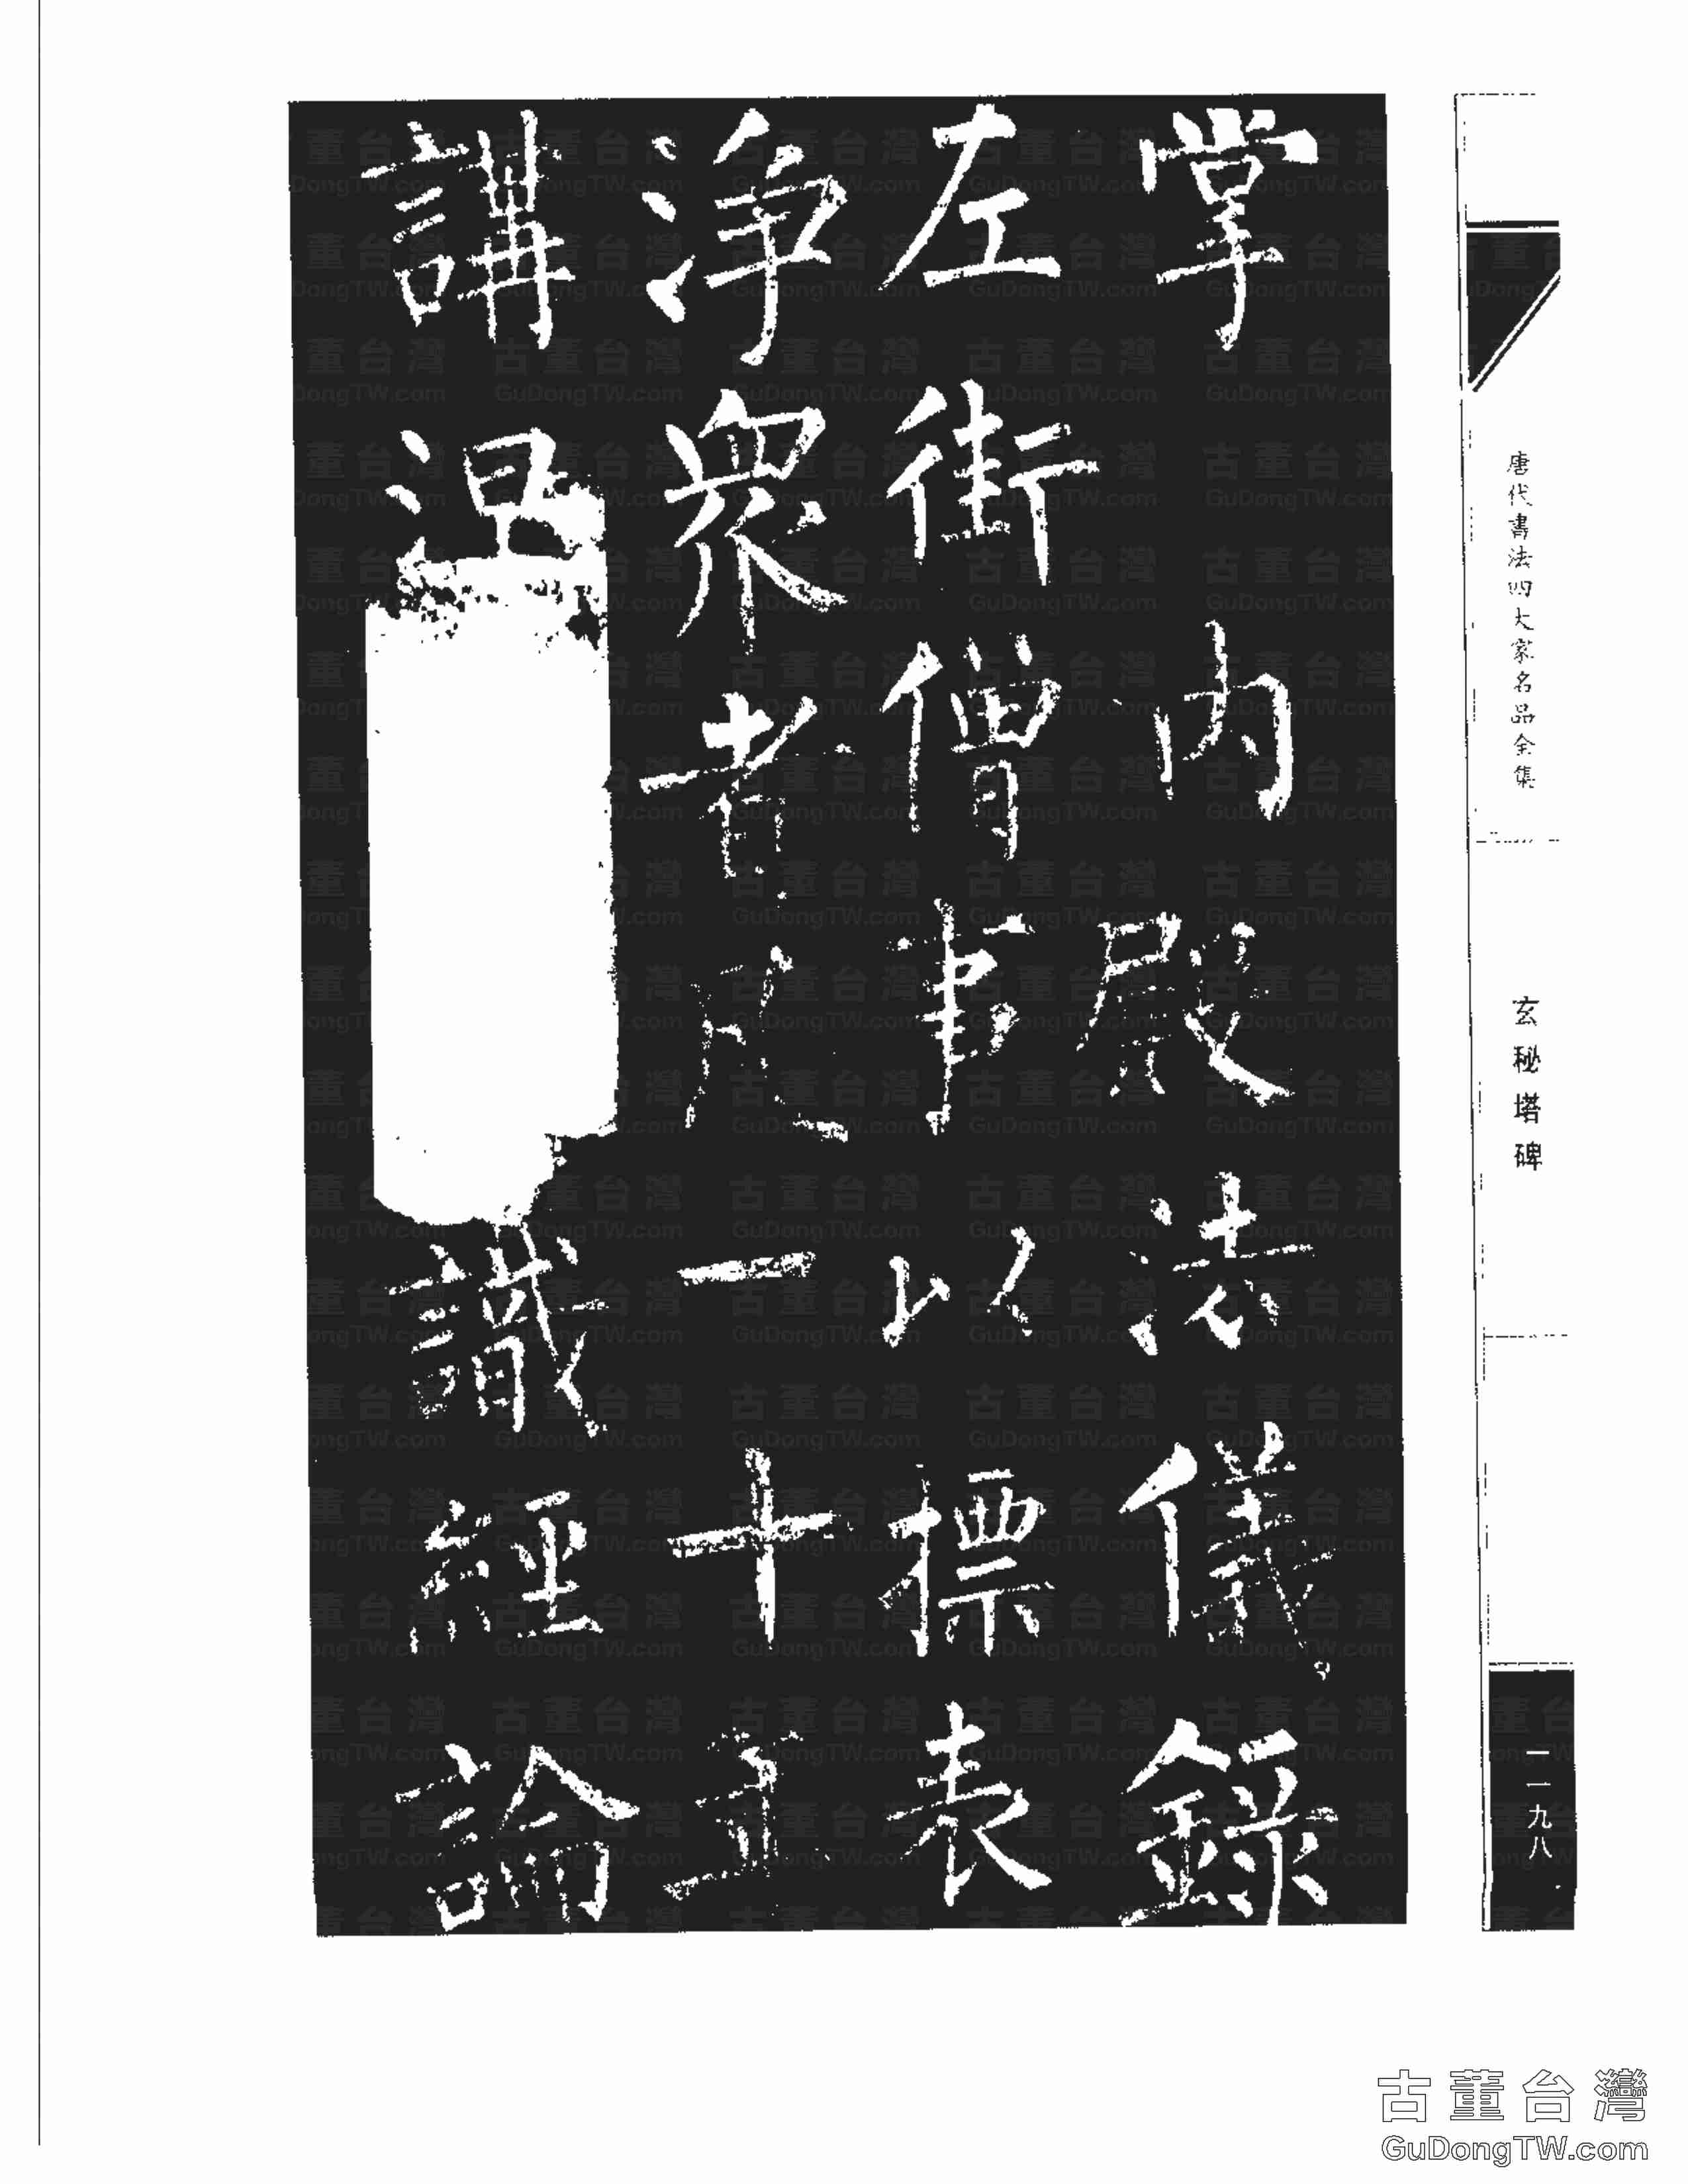 掌內殿法儀錄
左街僧事以標表
淨眾者凡一十五
講涅
識經論
唐代書法四大家名品全集
玄秘塔碑
一一九八
古董台灣
GuDongTW.com